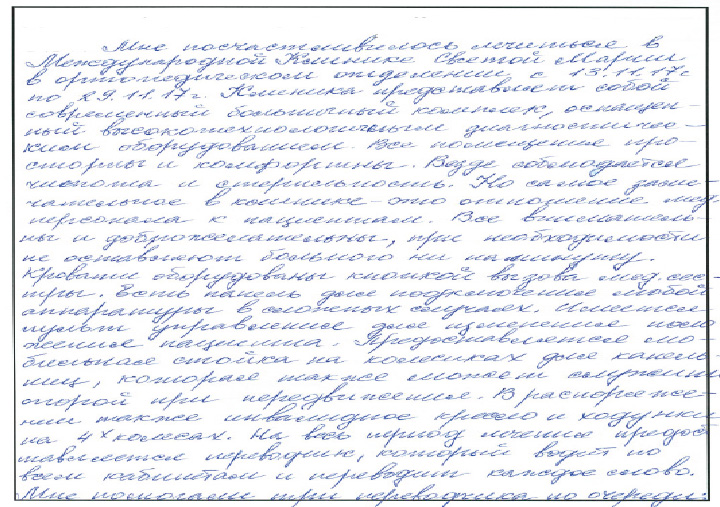 Мне посчастливилось лечиться в
Международной Клинике Святой Марии
в ортопедическом отделении с 13.11.17г
по 29.11.17г. Клиника представляет собой
современный больничный комплекс, оснащен-
ный высокотехнологичным диагностичес-
ким оборудованием. Все помещения про-
сторны и комфортны. Везде соблюдается
чистота и стерильность. Но самое заме-
чательное в клинике - это отношение мед.
персонала к пациентам. Все вниматель-
ны и доброжелательны, при необходимости
не оставляют больного ни на минуту.
Кровати оборудованы кнопкой вызова мед. сес-
тры. Есть панель для подключения любой
аппаратуры в сложных случаях. Имеется
пульт управления для изменения поло-
жения пациента. Предоставляется мо-
бильная стойка на колесиках для капель-
ниц, которая также может служить
опорой при передвижении. В распоряже-
нии также инвалидное кресло и ходунки
на 4х колесах. На весь период лечения предос
тавляется переводчик, который водит по
всем кабинетам и переводит каждое слово.
Мне помогали три переводчика по очереди: